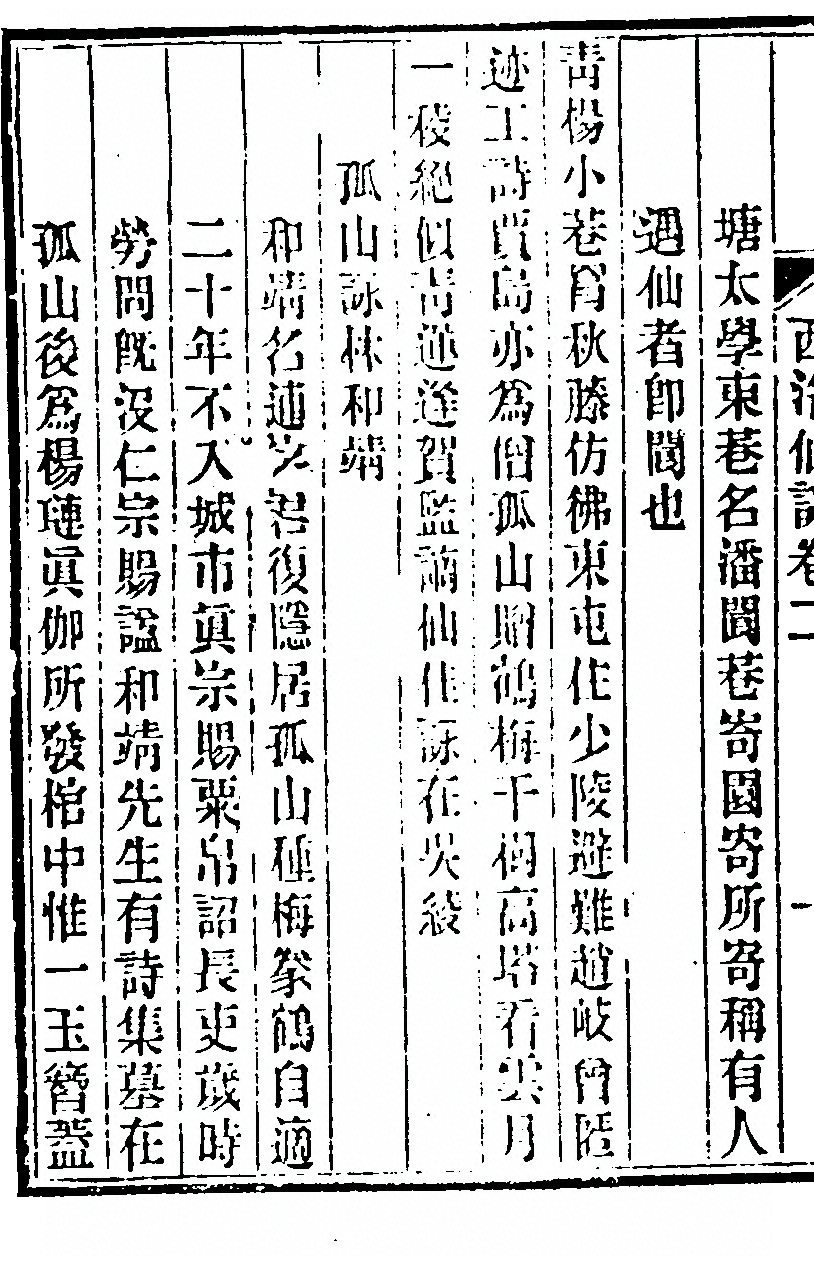 西泠仙詠卷二
一
塘太學東巷名潘閬巷寄園寄所寄稱有人
遇仙者卽閬也
靑楊小巷爲秋藤仿彿東屯住少陵避難趙岐曾匿
迹工詩賈島亦爲僧孤山贈鶴梅千樹高塔看雲月
一稜絕似靑蓮逢賀監謫仙佳詠在吳綾
孤山詠林和靖
和靖名逋字君復隱居孤山種梅豢鶴自適
二十年不入城市眞宗賜粟帛詔長吏歲時
勞問旣沒仁宗賜諡和靖先生有詩集墓在
孤山後爲楊璉眞伽所發棺中惟一玉簪蓋